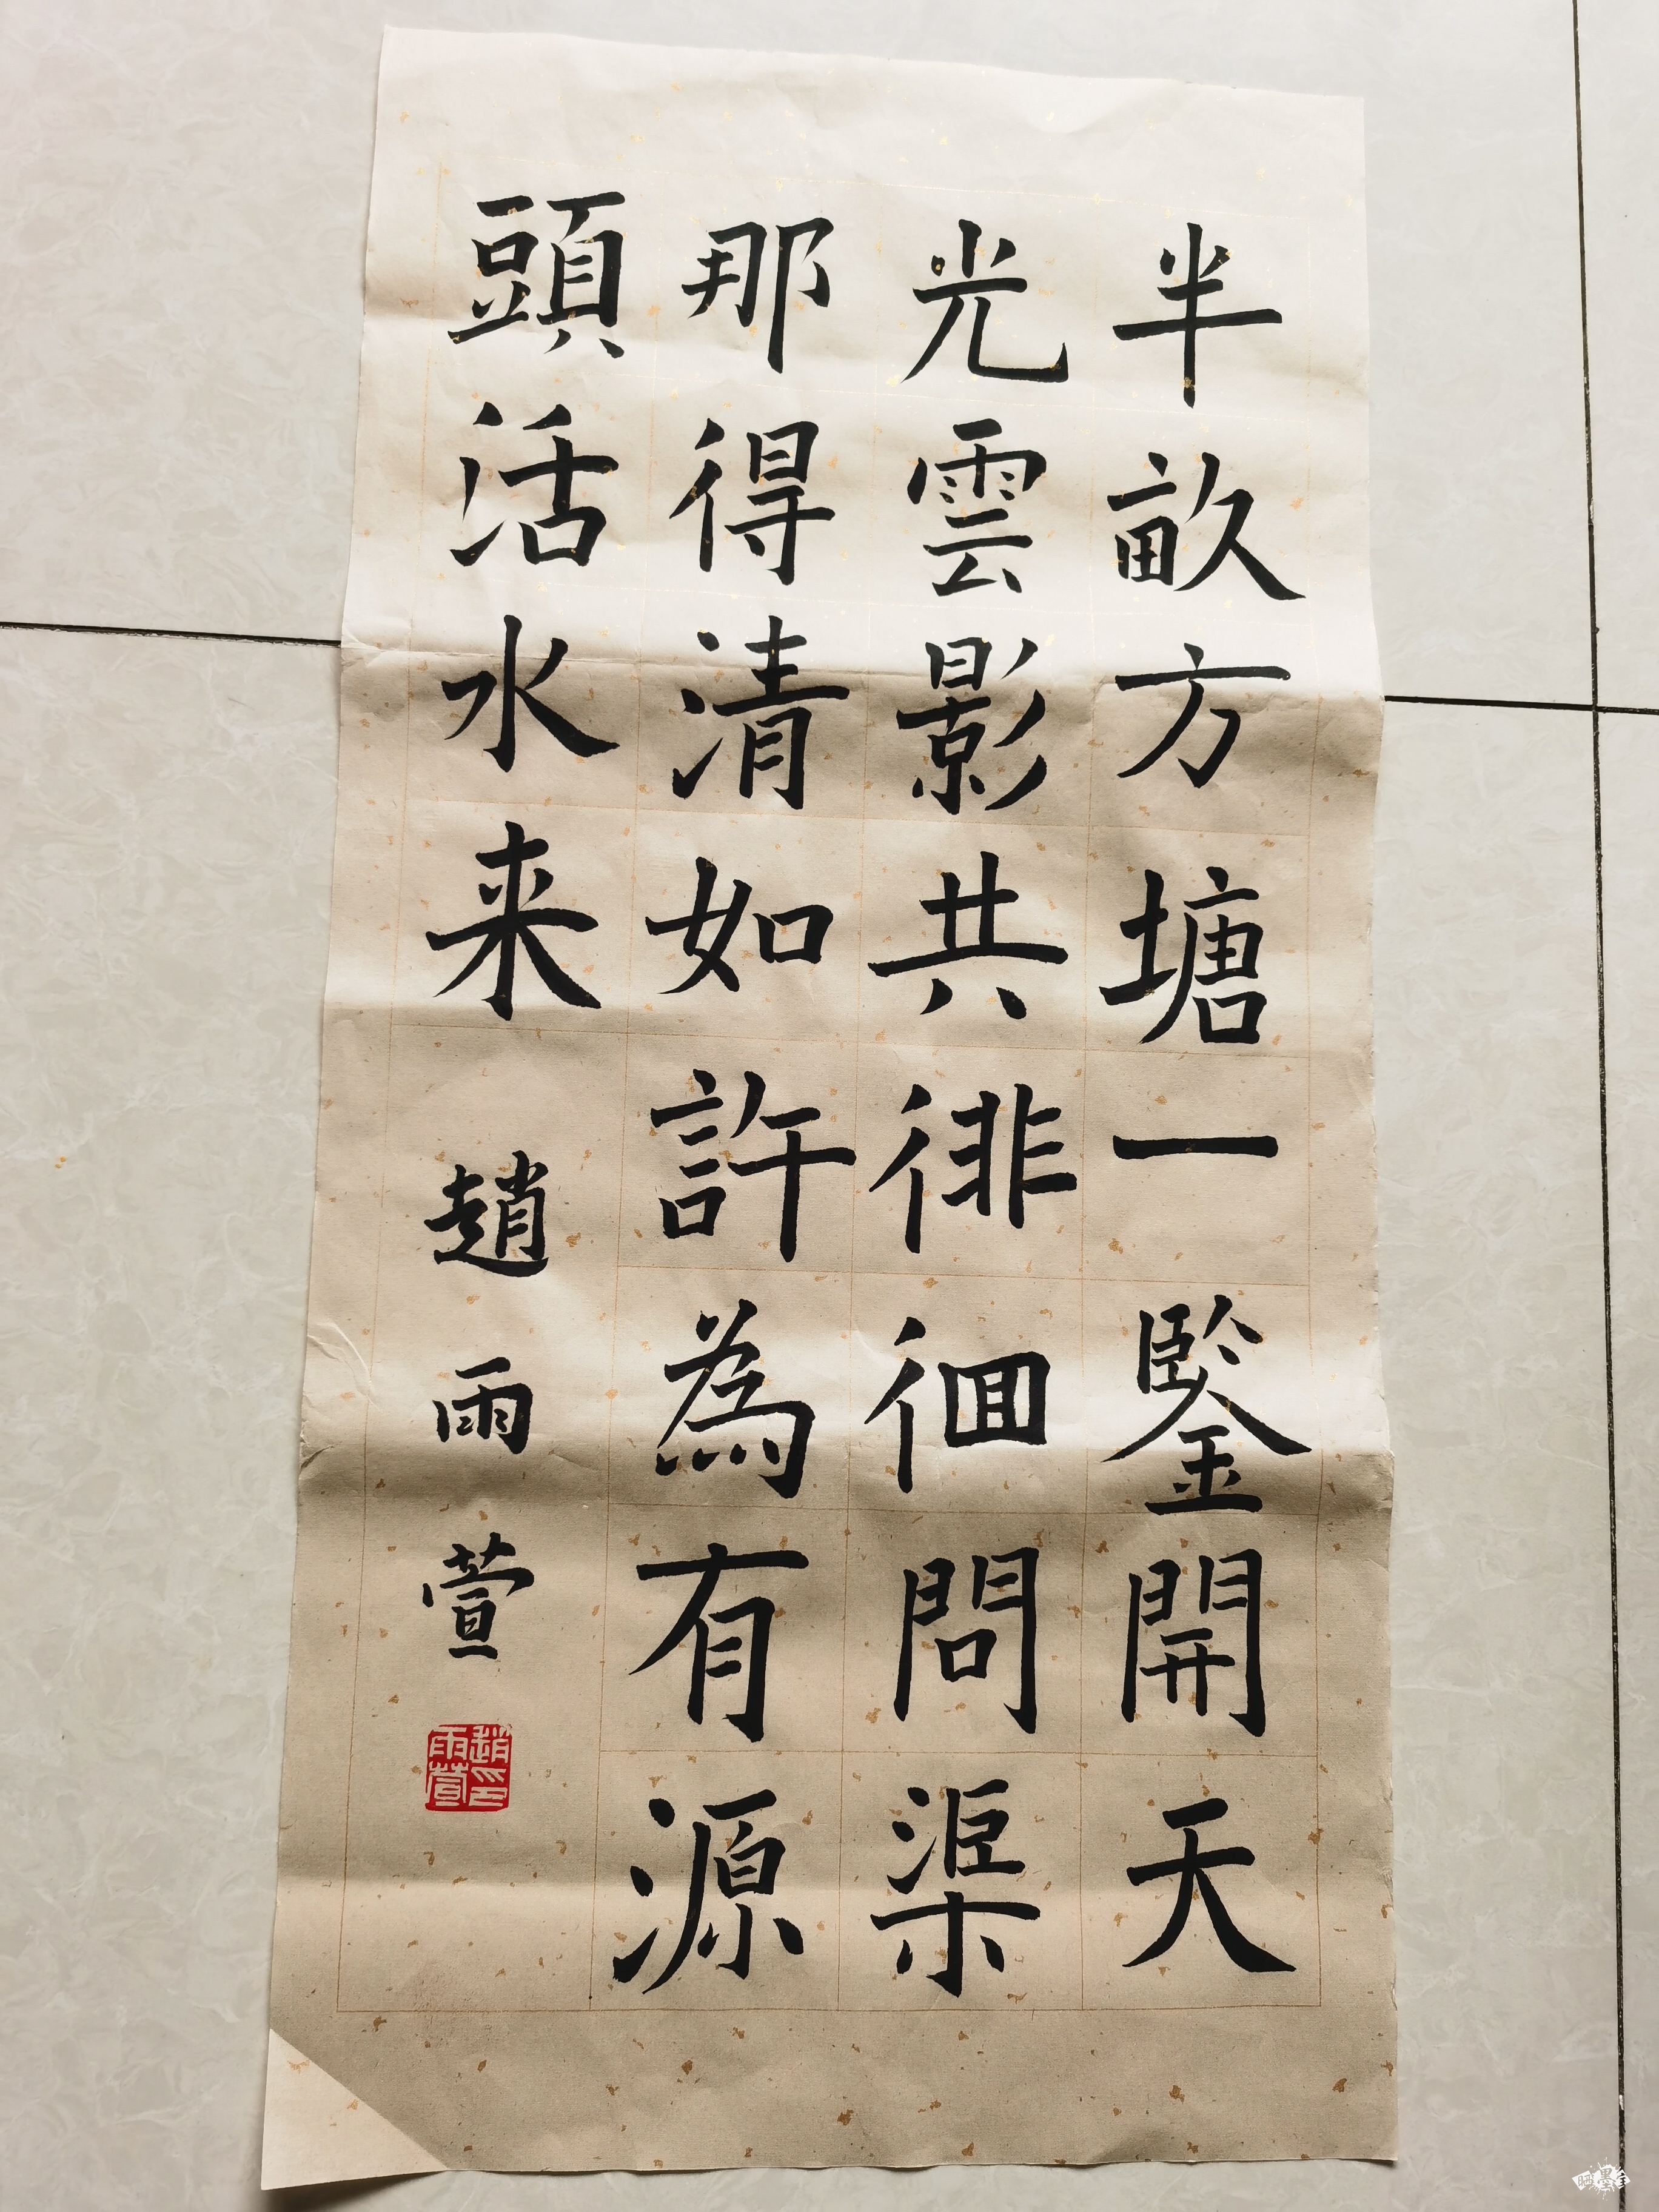 半畝方塘一鋻開天
光雲影共徘徊問渠
那得清如許為有源
頭活水来
趙雨萱
趙印雨萱